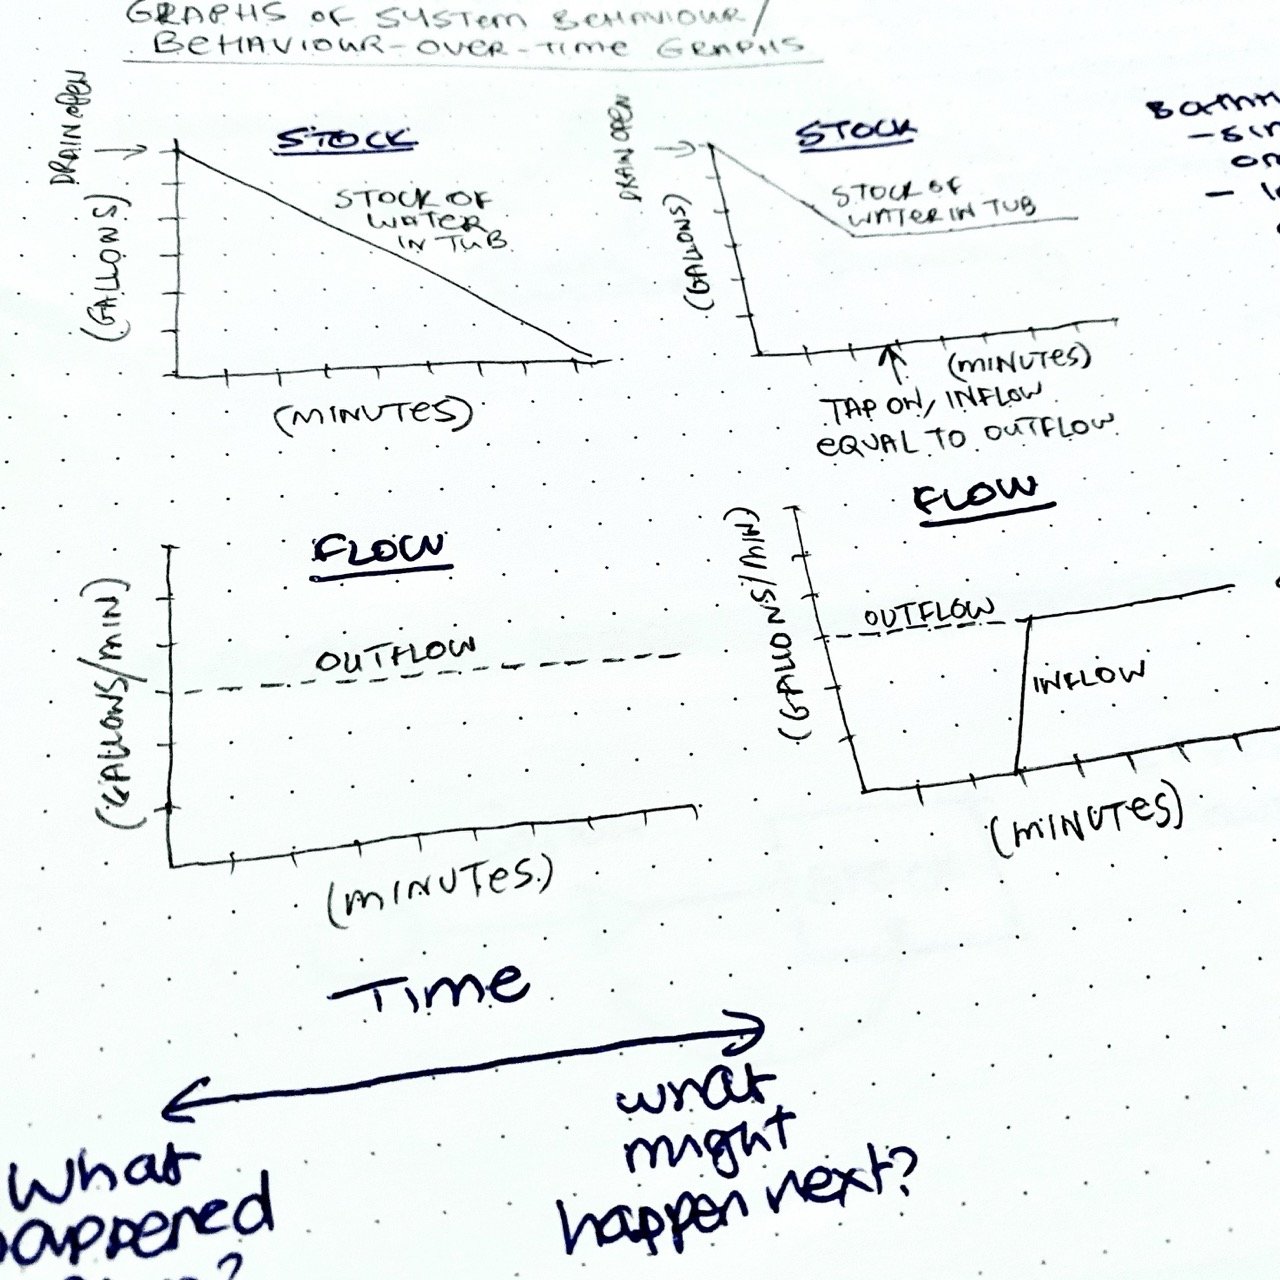 GRAPHS OF SYSTEM BEHAVIOUR/
BEHAVIOUR-OVER-TIME GRAPHS
DRAIN OPEN
STOCK
STOCK OF
WATER
IN TUB
(GALLONS)
(MINUTES)
DRAIN OPEN
STOCK
STOCK OF
WATER IN TUB
(GALLONS)
(MINUTES)
TAP ON, INFLOW
EQUAL TO OUTFLOW
FLOW
OUTFLOW
(GALLONS/MIN)
(MINUTES)
FLOW
OUTFLOW
INFLOW
(GALLONS/MIN)
(MINUTES)
Time
What
happened
what
might
happen next?